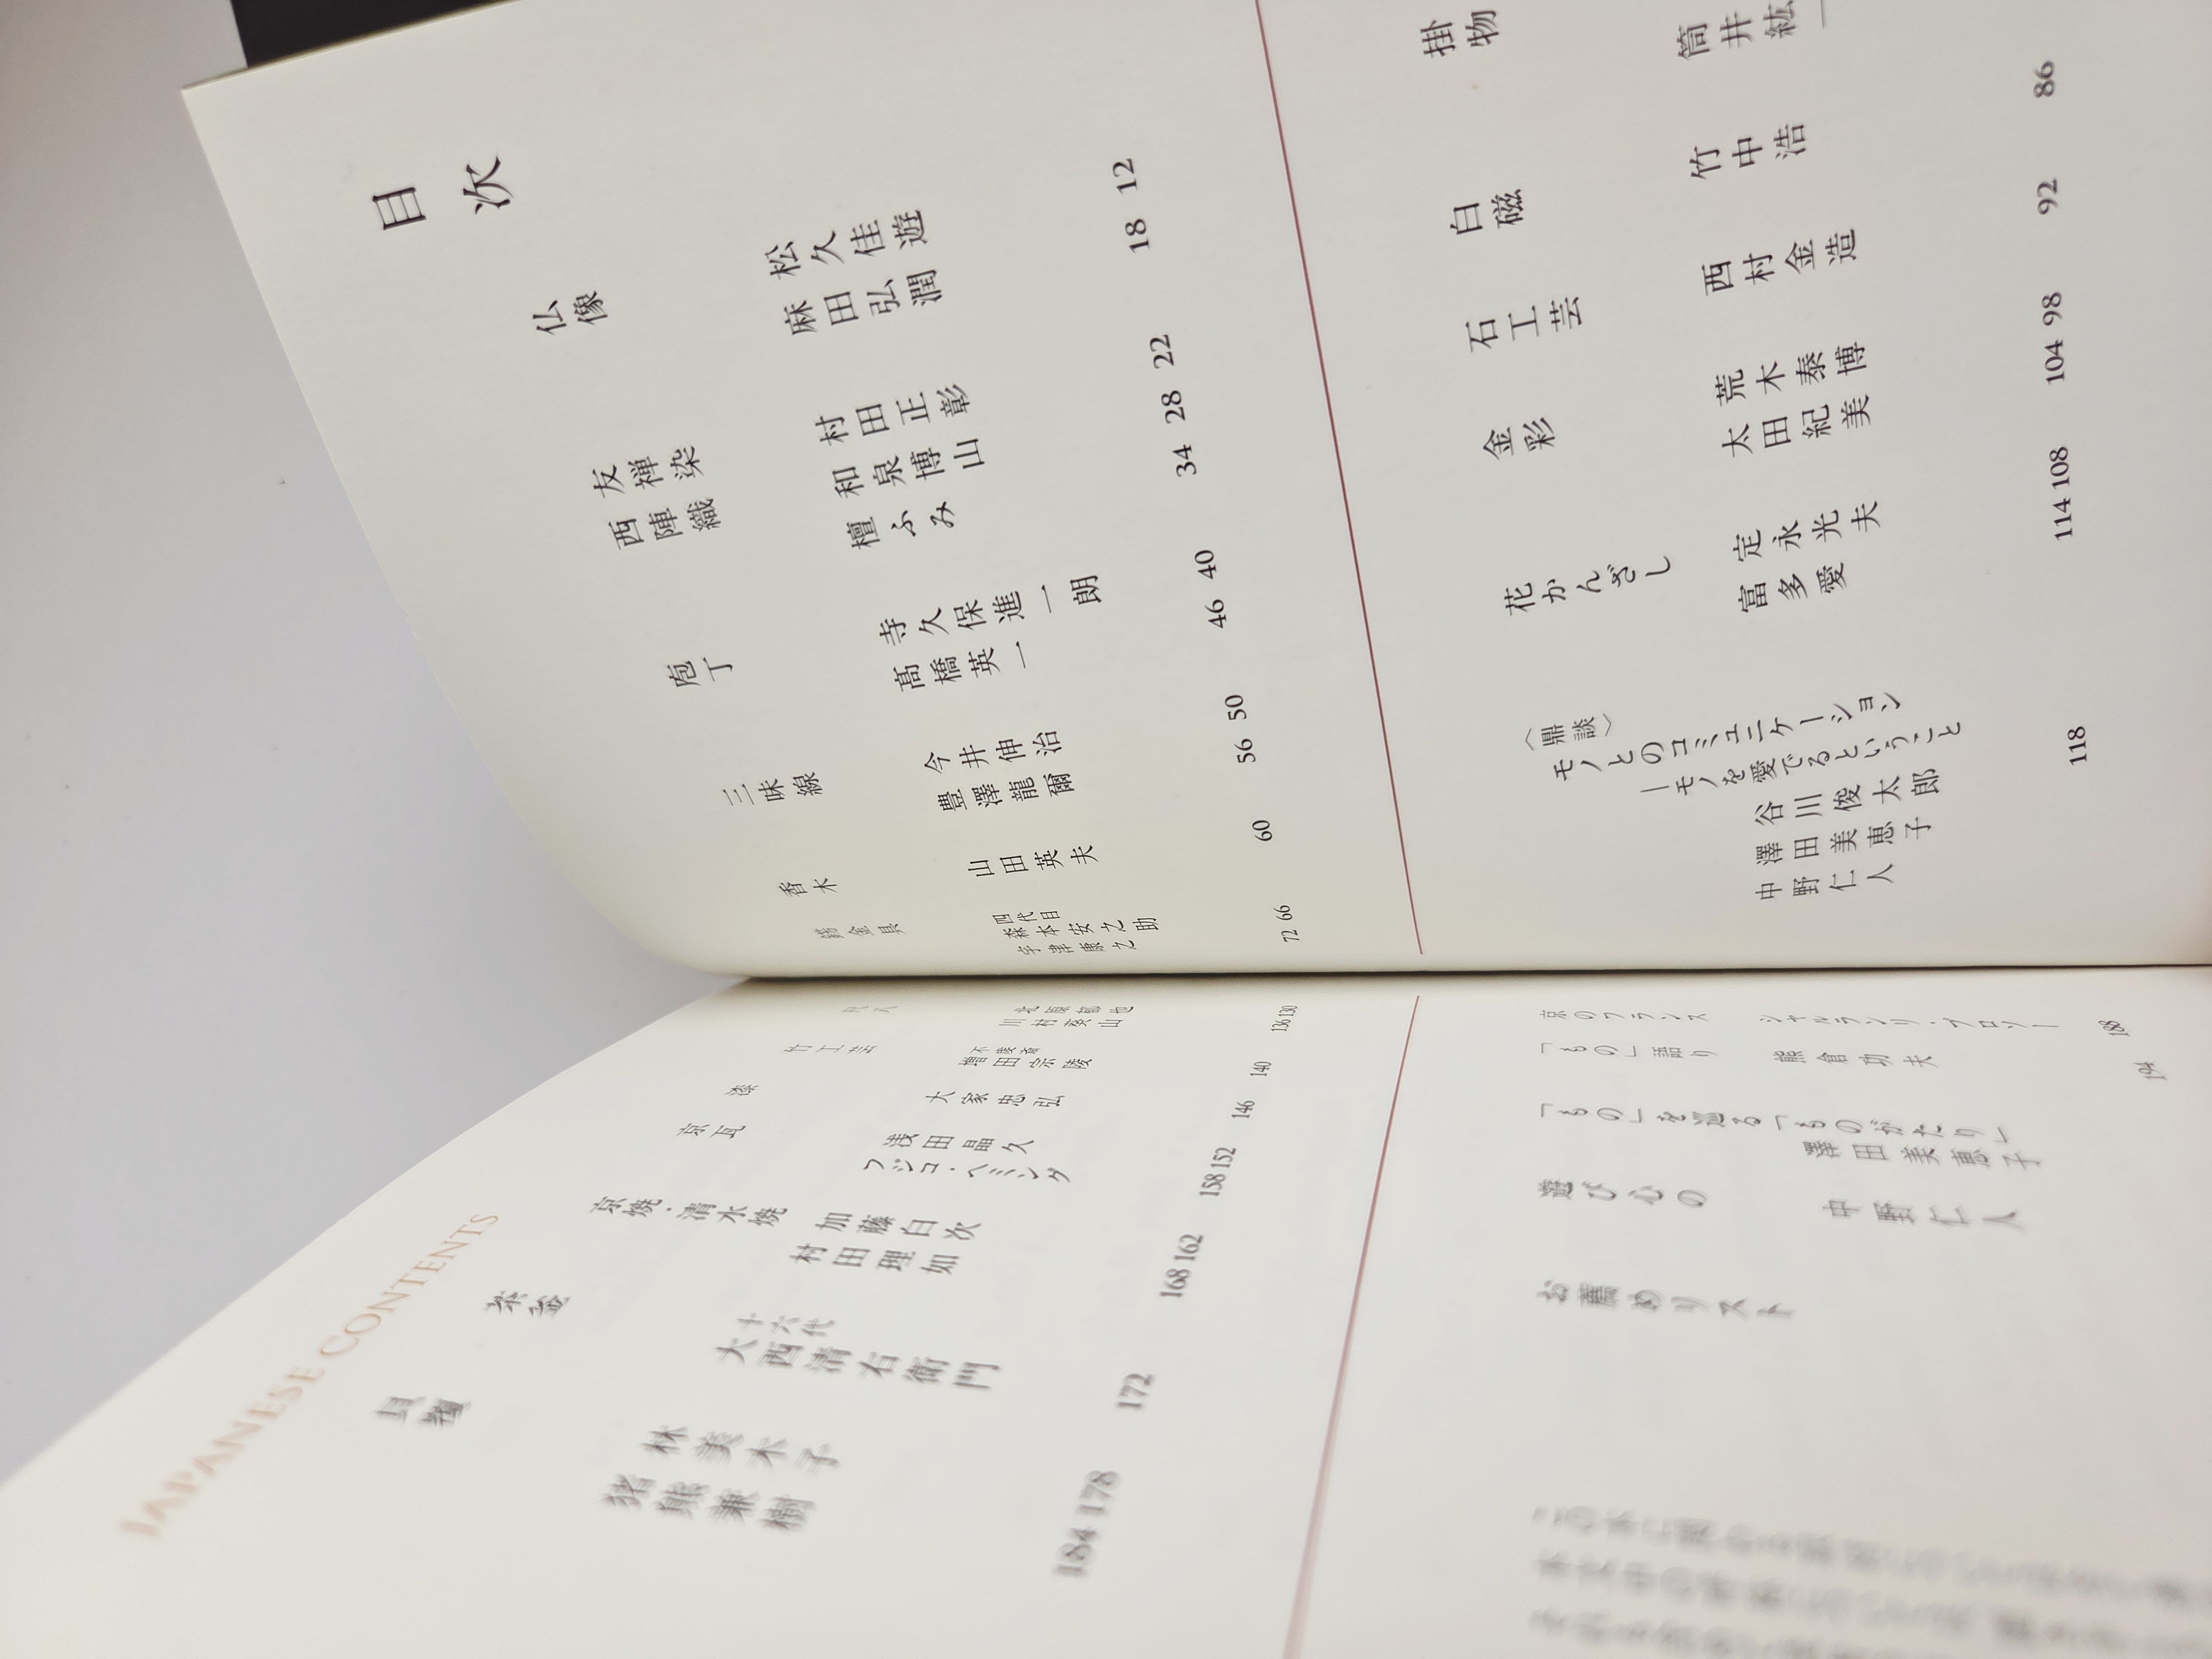 目次
仏像
松久佳遊 12
麻田弘潤 18
友禅染
村田正彰 22
西陣織
和泉博山 28
檀ふみ 34
庖丁
寺久保進一朗 40
髙橋英一 46
三味線
今井伸治 50
豊澤龍爾 56
香木
山田英夫 60
錺金具
四代目
森本安之助 66
72
掛物
筒井紘一
86
白磁
竹中浩 92
石工芸
西村金造 98
金彩
荒木泰博 104
太田紀美 108
花かんざし
定永光夫 114
富多愛
〈鼎談〉
モノとのコミュニケーション
―モノを愛でるということ
谷川俊太郎
澤田美恵子
中野仁人
118
130
川村葵山 136
竹工芸
不窮斎
増田宗陵 140
漆
大家忠弘 146
京瓦
浅田晶久 152
フジコ・ヘミング 158
京焼・清水焼
加藤白次 162
村田理如 168
茶釜
十六代
大西清右衛門 172
林美木子 178
猪熊兼樹 184
京のフランス
シャルランリ・ブロソー
188
「もの」語り
熊倉功夫
194
「もの」を巡る「ものがたり」
澤田美恵子
遊び心の
中野仁人
お薦めリスト
JAPANESE CONTENTS